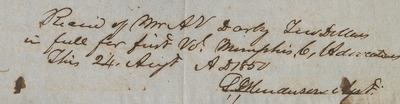 Recd of Mr A V Darby Two Dollars
in full for first Vol. Memphis C, Advocate
This 24 Augt AD 1850
Henderson Agt.